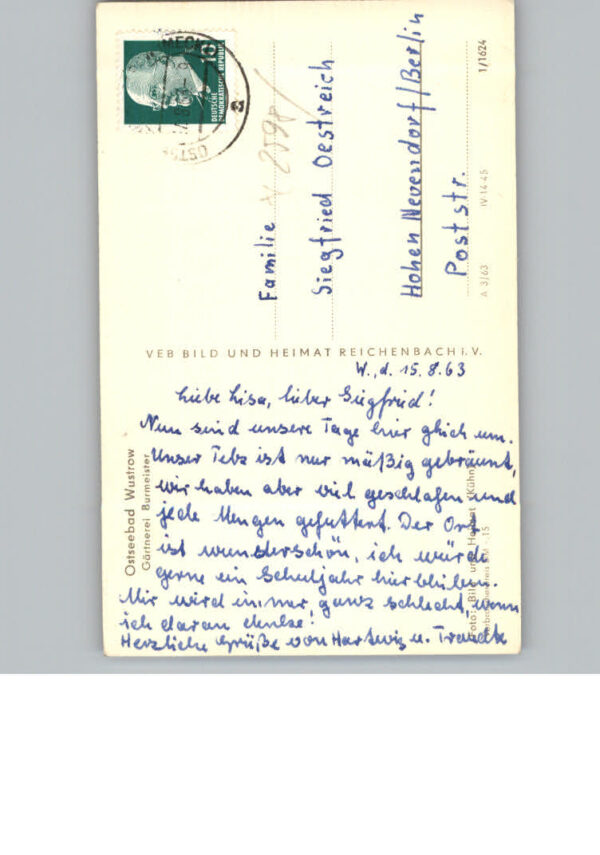 DEUTSCHE
DEMOKRATISCHE REPUBLIK
10
MECK
OSTS
a
Familie
Siegfried Oestreich
Hohen Neuendorf/Berlin
Poststr.
1/1624
IV-14-45
A 3/63
VEB BILD UND HEIMAT REICHENBACH i. V.
Ostseebad Wustrow
Gärtnerei Burmeister
W., d. 15.8.63
Liebe Lisa, lieber Siegfried!
Nun sind unsere Tage hier gleich um.
Unser Tebz ist nur mäßig gebräunt,
wir haben aber viel geschlafen und
jede Mengen gefuttert. Der Ort
ist wunderschön, ich würde
gerne ein Schuljahr hierbleiben.
Mir wird immer ganz schlecht, wenn
ich daran denke!
Herzliche Grüße von Hartwig u.
Foto: Bild und Heimat (Kühn)